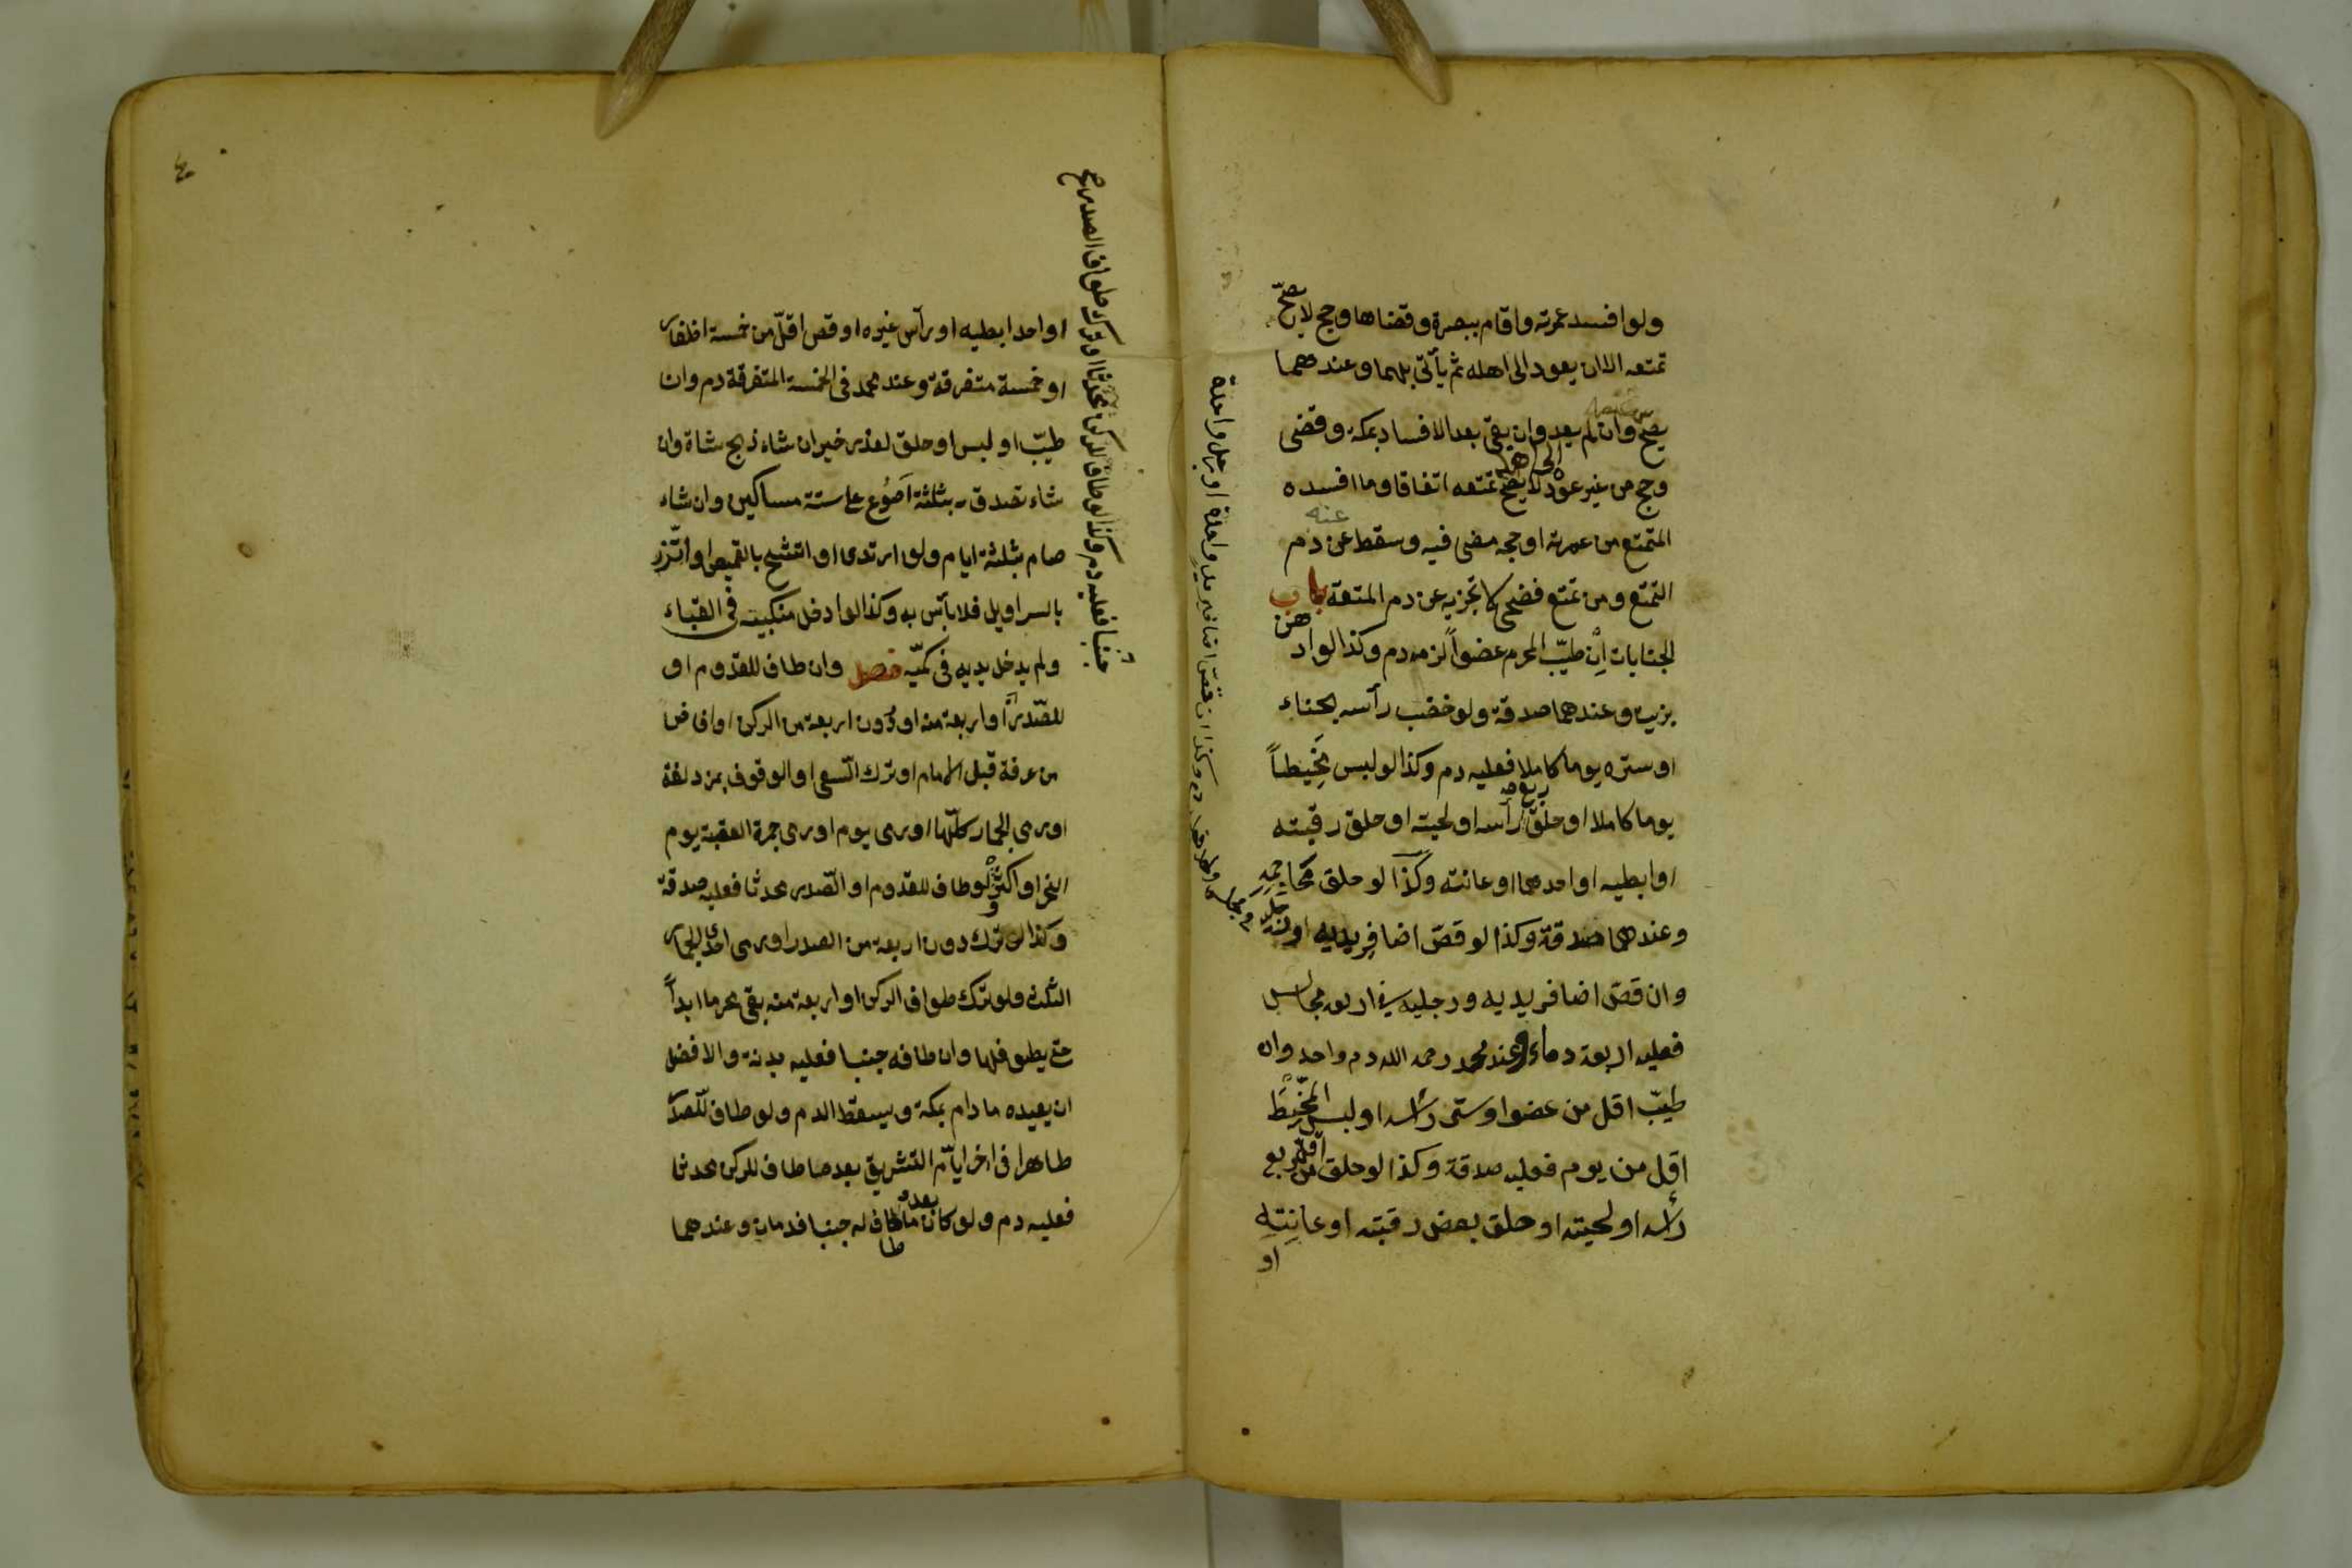 ولو افسد عمرته واقام ببصرة وقضاها وحج لا يصحّ
تمتعه الا ان يعود الى اهله ثم يأتى بهما وعندهما
يصحّ وان لم يعد وان بقى بعد الافساد بمكة وقضى
وحج من غير عود لا يصح تمتعه اتفاقا وما افسده
الى اهله
المتمتع من عمرته او حجه مضى فيه وسقط عن دم
عنه
التمتع ومن تمتع فضحى لا تجزيه عن دم المتعة باب
الجنايات اِنْ طيّب المحرم عضواً لزمه دم وكذا لو ادهن
بزيت وعندهما صدقة ولو خضب رأسه بحناء
او ستره يوما كاملا فعليه دم وكذا لو لبس مَخِيطاً
يوما كاملا او حلق ربع رأسه او لحيته او حلق رقبته
او ابطيه او احدهما او عانته وكذا لو حلق محاجمه
وعندهما صدقة وكذا لو قصّ اضافر يديه او رجليه
وان قصّ اضافر يديه ورجليه فى اربع مجالس
فعليه اربعة دماء وعند محمد رحمه الله دم واحد وان
طيّب اقل من عضو او ستر رأسه او لبس المَخِيط
اقل من يوم فعليه صدقة وكذا لو حلق اقل من ربع
رأسه او لحيته او حلق بعض رقبته او عانته
او
وكذا ان قصّ اضافير يد واحدة او رجل واحدة
او احد ابطيه او رأس غيره او قص اقلّ من خمسة اظفار
او خمسة متفرقة وعند محمد فى الخمسة المتفرقة دم وان
طيّب او لبس او حلق لعذر خير ان شاء ذبح شاة وان
شاء تصدق بثلثة اَصوُع على ستة مساكين وان شاء
صام ثلثة ايام ولو ارتدى او اتشح بالقميص او اتّزر
بالسراويل فلا بأس به وكذا لو ادخل منكبيه فى القباء
ولم يدخل يديه فى كميّه فصل وان طاف للقدوم او
للصّدر او اربعة منه او دُون اربعة من الركن او افاض
من عرفة قبل الامام او ترك السّعى او الوقوف بمزدلفة
او رمى الجمار كلّها او رمى يوم او رمى جمرة العقبة يوم
النحر او اكثره ولو طاف للقدوم او الصّدر محدثا فعليه صدقة
وكذا لو ترك دون اربعة من الصدر او رمى احدى الجمار
الثلث ولو ترك طواف الركن او اربعة منه بقى محرما ابداً
حتى يطوفها وان طافه جنبا فعليه بدنة والافضل
ان يعيده ما دام بمكة ويسقط الدم ولو طاف للصّدر
طاهرا فى اخر ايام التشريق بعد ما طاف للركن محدثا
فعليه دم ولو كان بعد ما طاف له جنبا فدمان وعندهما
طا
جنبا فعليه دم وكذا لو طاف للركن محدثا او ترك طواف الصدر صح